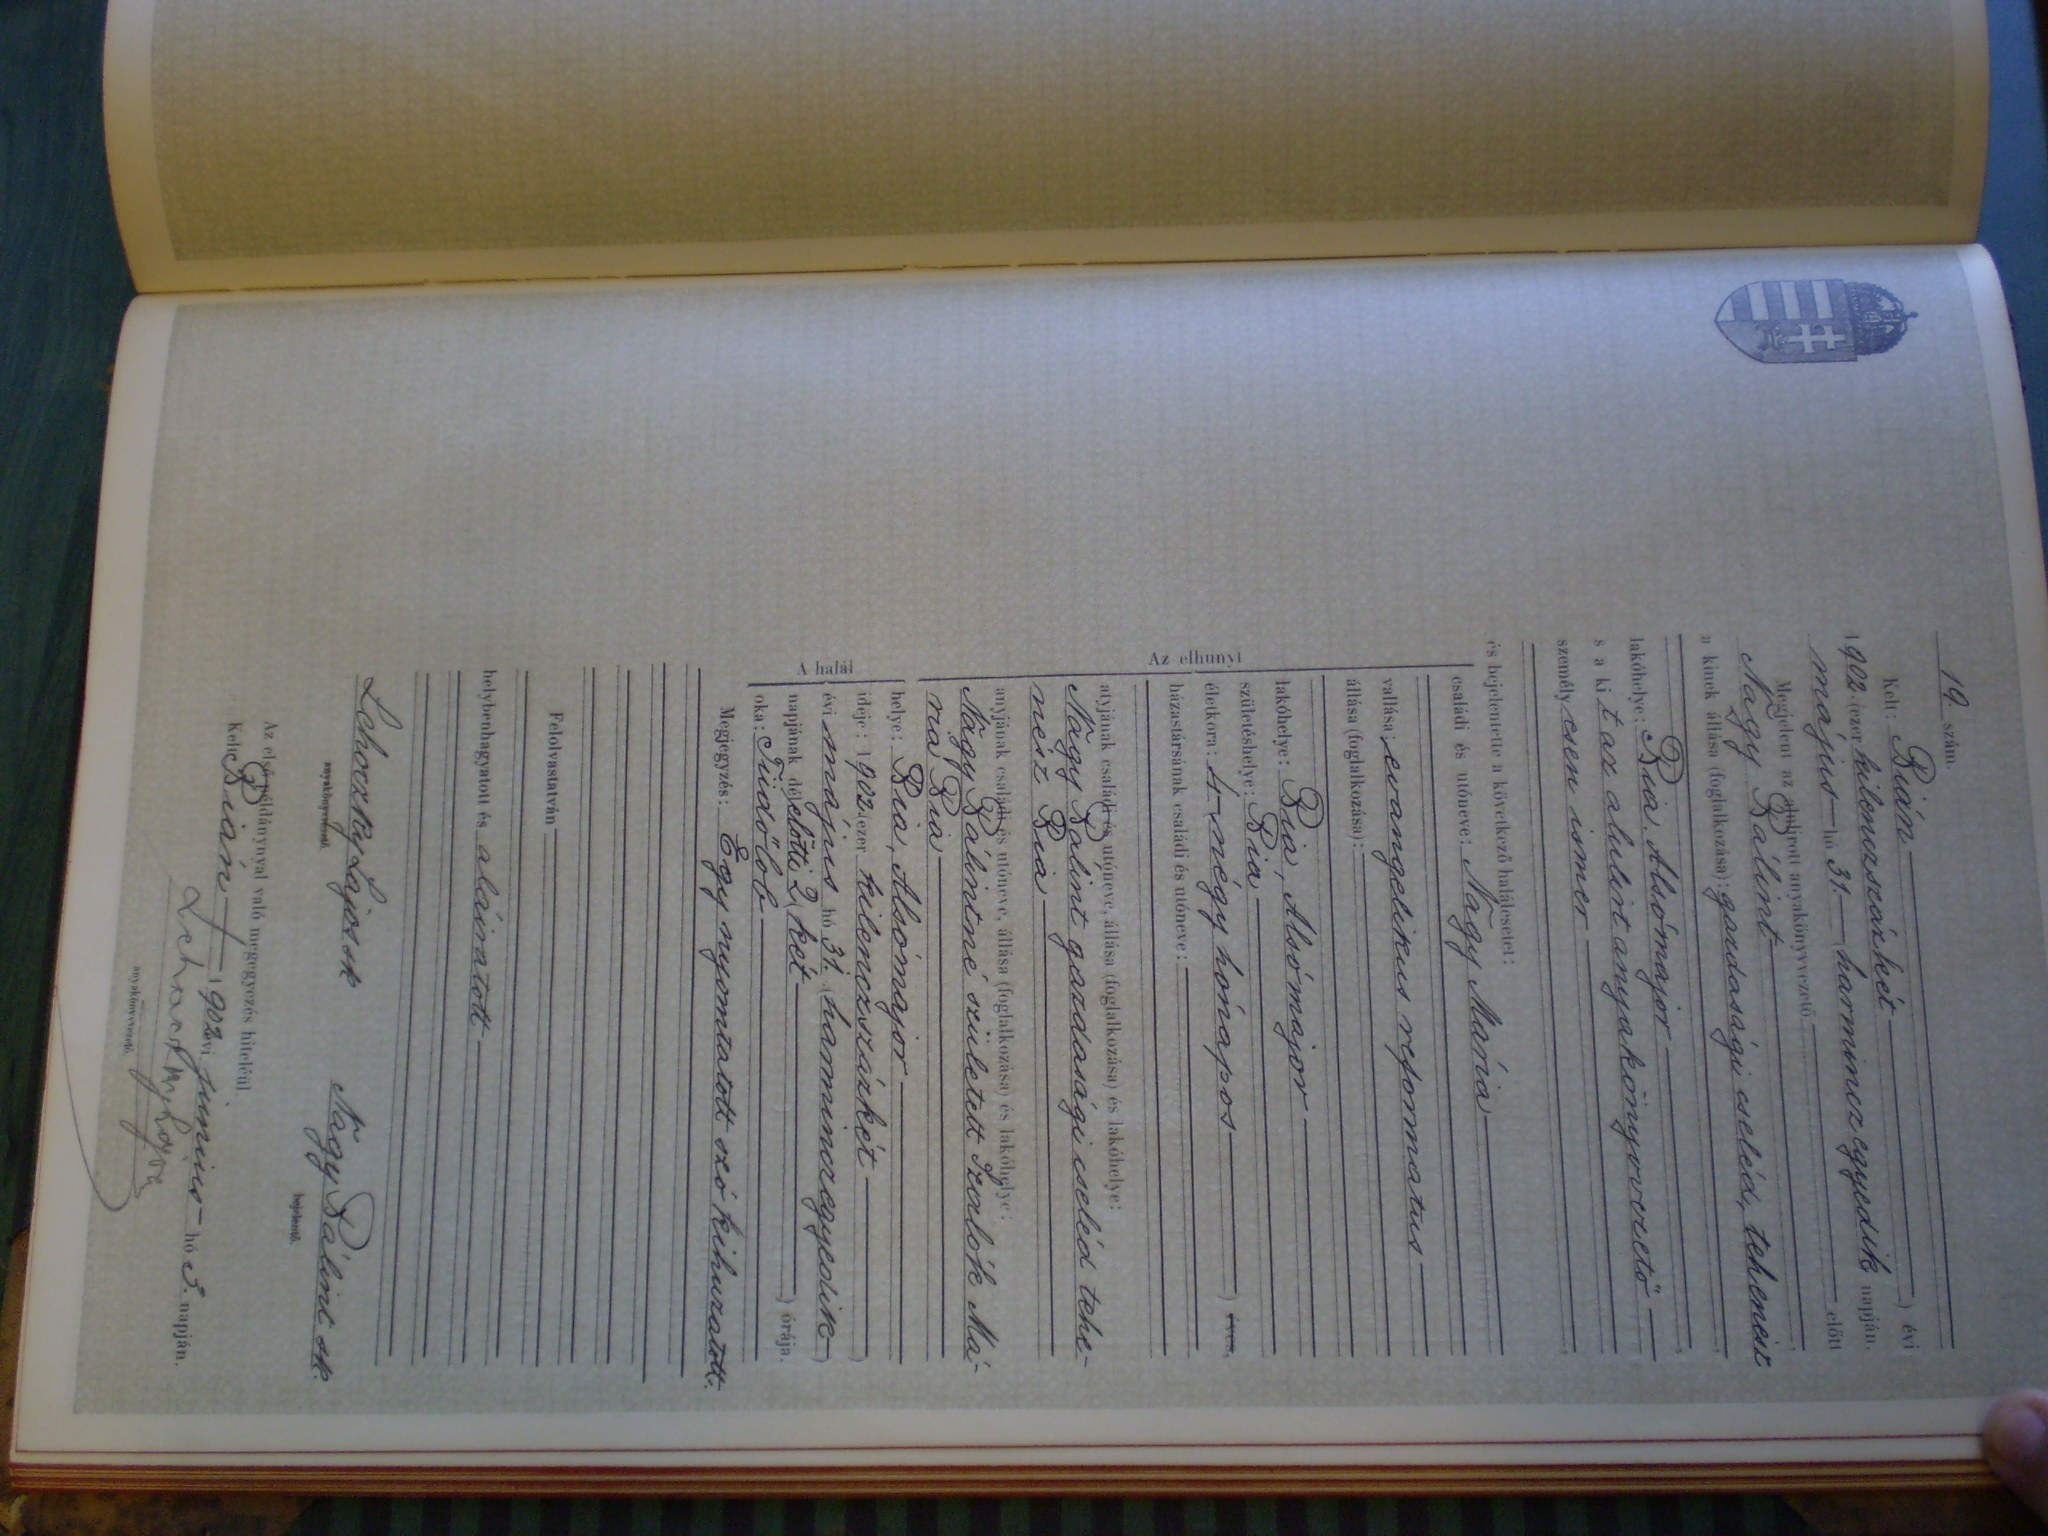 19. szám.
Kelt: Bián ) évi
1902. (ezer kilenczszázkét
május hó 31. (harminczegyedik napján.
Megjelent az alulirott anyakönyvvezető előtt
Nagy Bálint
a kinek állása (foglalkozása): gazdasági cseléd, tehenész
lakóhelye: Bia. Alsómajor
s a ki t az alulirt anyakönyvvezető
személyesen ismer
és bejelentette a következő halálesetet:
Az elhunyt
családi és utóneve: Nagy Mária
vallása: evangelikus reformatus
állása (foglalkozása):
lakóhelye: Bia, Alsómajor
születéshelye: Bia
életkora: 4 négy hónapos ) éves,
házastársának családi és utóneve:
atyjának családi és utóneve, állása (foglalkozása) és lakóhelye:
Nagy Bálint gazdasági cseléd tehe-
nész Bia
anyjának családi és utóneve, állása (foglalkozása) és lakóhelye:
Nagy Bálintné született Szorlók Má-
ria Bia
A halál
helye: Bia, Alsómajor
ideje: 1902 (ezer kilenczszázkét )
évi május hó 31. (harminczegyedike )
napjának délelőtti 2 (két ) órája.
oka: Tüdőlob
Megjegyzés: Egy nyomtatott szó kihuzatott.
Felolvastatván
helybenhagyatott és aláiratott
Lehoczky Lajos sk Nagy Bálint sk.
anyakönyvvezető. bejelentő.
Az elsőpéldánynyal való megegyezés hiteléül.
Kelt Bián 1902 évi junius hó 3. napján.
anyakönyvvezető.